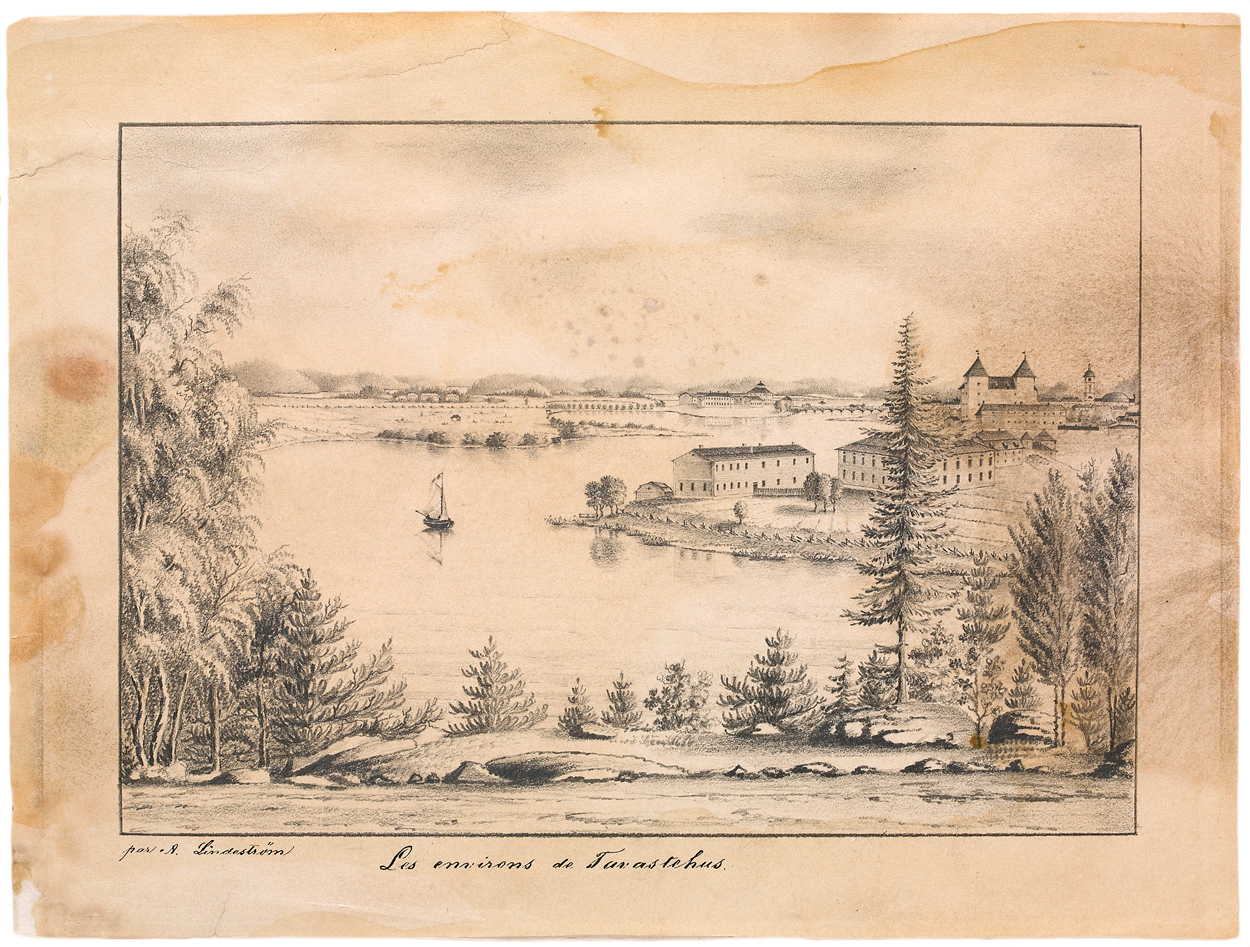 par A. Lindeström
Les environs de Tavastehus.